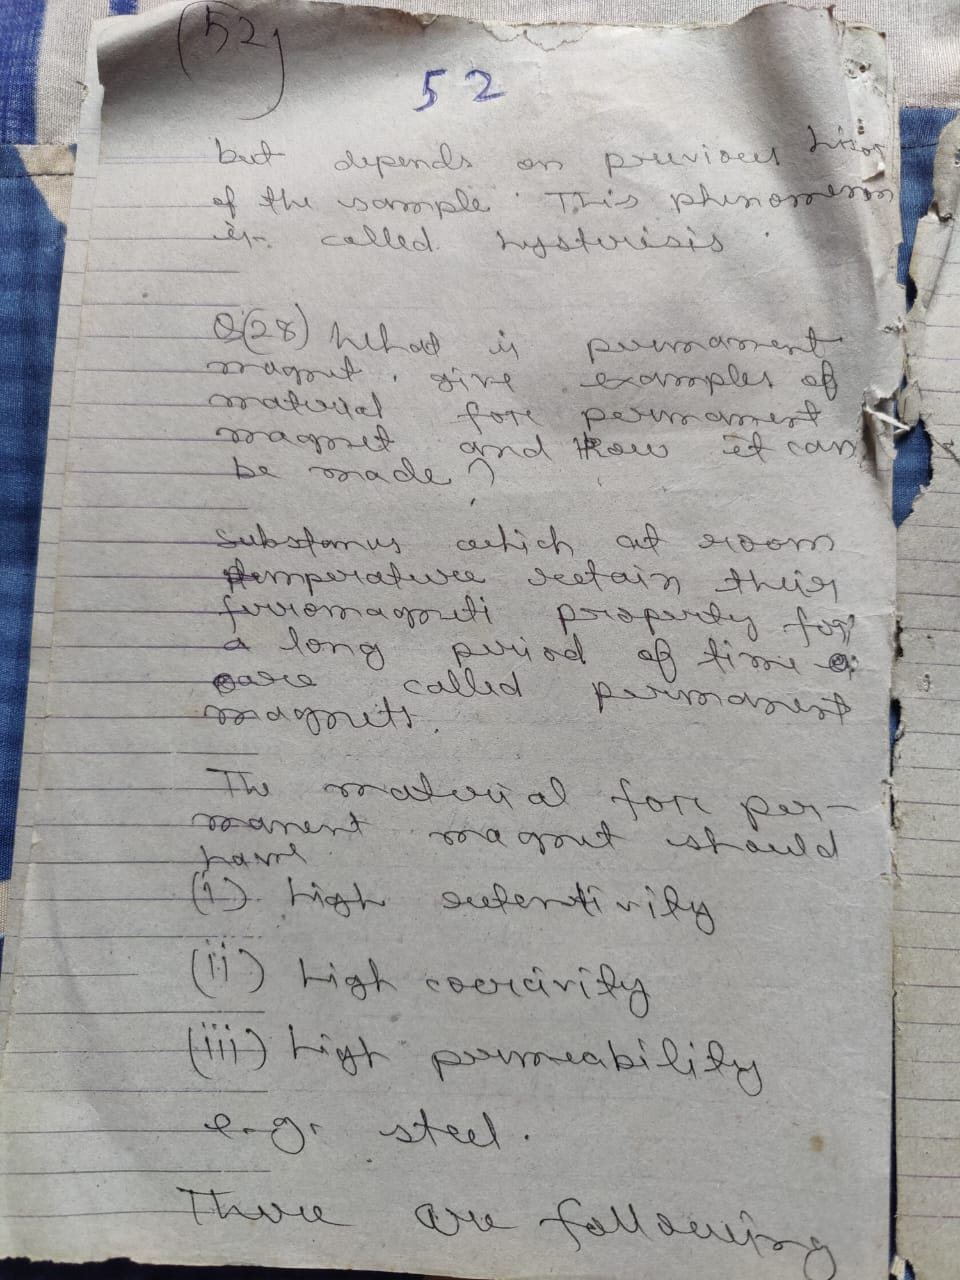 (52)
52
but depends on previous histor
of the sample. This phenomenon
is called hysterisis.
Q(28) What is permanent
magnet. give examples of
material for permanent
magnet and how it can
be made?
Substances which at room
temperature retain their
ferromagneti property for
a long period of time
are called permanent
magnets.
The material for per-
manent magnet should
have
(i) high retentivity
(ii) high coercivity
(iii) high permeability
e.g. steel.
There are following